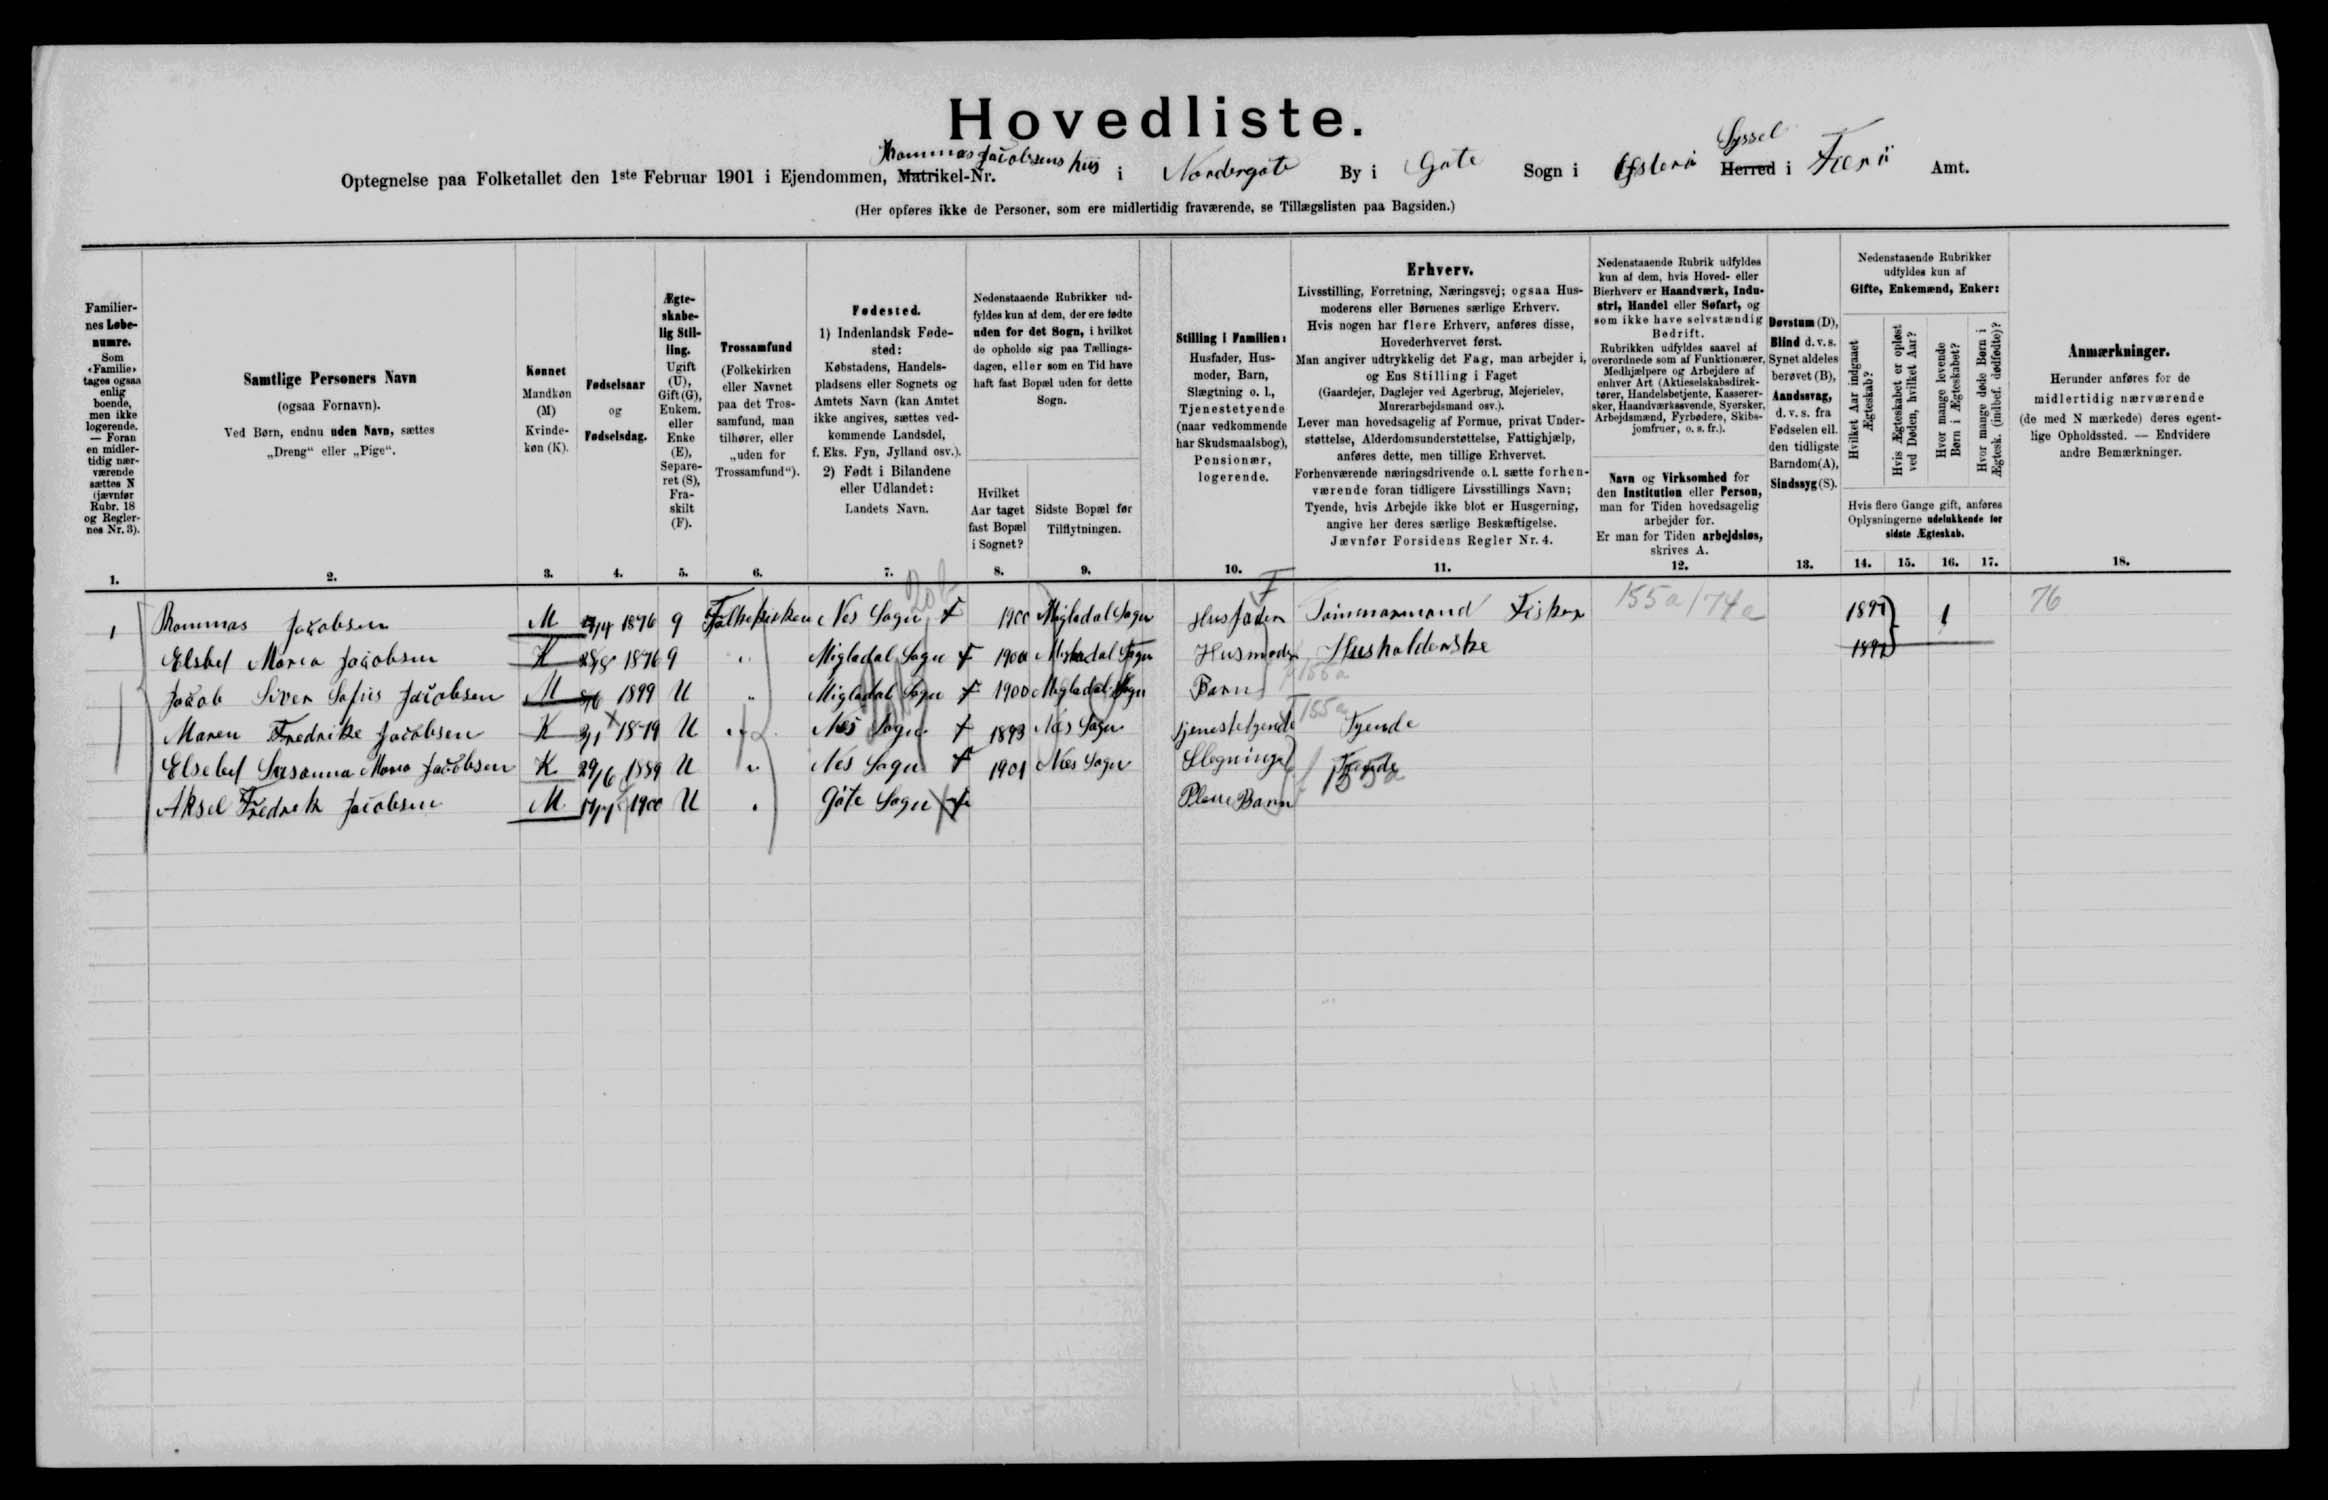 Hovedliste.
Optegnelse paa Folketallet den 1ste Februar 1901 i Ejendommen, Matrikel-Nr. Thommas Jacobsens hus i Nordergøte By i Gøte Sogn i Østerø Herred Syssel i Færø Amt.
(Her opføres ikke de Personer, som ere midlertidig fraværende, se Tillægslisten paa Bagsiden.)
Familiernes Løbenumre. Som «Familie» tages ogsaa enlig boende, men ikke logerende. — Foran en midlertidig nærværende sættes N (jævnfør Rubr. 18 og Reglernes Nr. 3).
Samtlige Personers Navn (ogsaa Fornavn). Ved Børn, endnu uden Navn, sættes „Dreng“ eller „Pige“.
Kønnet Mandkøn (M) Kvindekøn (K).
Fødselsaar og Fødselsdag.
Ægteskabelig Stilling. Ugift (U), Gift (G), Enkem. eller Enke (E), Separeret (S), Fraskilt (F).
Trossamfund (Folkekirken eller Navnet paa det Trossamfund, man tilhører, eller „uden for Trossamfund“).
Fødested. 1) Indenlandsk Fødested: Købstadens, Handelspladsens eller Sognets og Amtets Navn (kan Amtet ikke angives, sættes vedkommende Landsdel, f. Eks. Fyn, Jylland osv.). 2) Født i Bilandene eller Udlandet: Landets Navn.
Nedenstaaende Rubrikker udfyldes kun af dem, der ere fødte uden for det Sogn, i hvilket de opholde sig paa Tællingsdagen, eller som en Tid have haft fast Bopæl uden for dette Sogn.
Hvilket Aar taget fast Bopæl i Sognet?
Sidste Bopæl før Tilflytningen.
Stilling i Familien: Husfader, Husmoder, Barn, Slægtning o. l., Tjenestetyende (naar vedkommende har Skudsmaalsbog), Pensionær, logerende.
Erhverv.
Livsstilling, Forretning, Næringsvej; ogsaa Husmoderens eller Børnenes særlige Erhverv.
Hvis nogen har flere Erhverv, anføres disse, Hovederhvervet først.
Man angiver udtrykkelig det Fag, man arbejder i, og Ens Stilling i Faget
(Gaardejer, Daglejer ved Agerbrug, Mejerielev, Murerarbejdsmand osv.).
Lever man hovedsagelig af Formue, privat Understøttelse, Alderdomsunderstøttelse, Fattighjælp, anføres dette, men tillige Erhvervet.
Forhenværende næringsdrivende o. l. sætte forhenværende foran tidligere Livsstillings Navn;
Tyende, hvis Arbejde ikke blot er Husgerning, angive her deres særlige Beskæftigelse.
Jævnfør Forsidens Regler Nr. 4.
Nedenstaaende Rubrik udfyldes kun af dem, hvis Hoved- eller Bierhverv er Haandværk, Industri, Handel eller Søfart, og som ikke have selvstændig Bedrift.
Rubrikken udfyldes saavel af overordnede som af Funktionærer, Medhjælpere og Arbejdere af enhver Art (Aktieselskabsdirektører, Handelsbetjente, Kasserersker, Haandværkssvende, Syersker, Arbejdsmænd, Fyrbødere, Skibsjomfruer, o. s. fr.).
Navn og Virksomhed for den Institution eller Person, man for Tiden hovedsagelig arbejder for.
Er man for Tiden arbejdsløs, skrives A.
Døvstum (D), Blind d. v. s. Synet aldeles berøvet (B), Aandssvag, d. v. s. fra Fødselen ell. den tidligste Barndom (A), Sindssyg (S).
Nedenstaaende Rubrikker udfyldes kun af Gifte, Enkemænd, Enker:
Hvilket Aar indgaaet Ægteskab?
Hvis Ægteskabet er opløst ved Døden, hvilket Aar?
Hvor mange levende Børn i Ægteskabet?
Hvor mange døde Børn i Ægtesk. (indbef. dødfødte)?
Hvis flere Gange gift, anføres Oplysningerne udelukkende for sidste Ægteskab.
Anmærkninger.
Herunder anføres for de midlertidig nærværende (de med N mærkede) deres egentlige Opholdssted. — Endvidere andre Bemærkninger.
1. 2. 3. 4. 5. 6. 7. 8. 9. 10. 11. 12. 13. 14. 15. 16. 17. 18.
1 Thommas Jacobsen M 1876 g Folkekirken Nes Sogn 1900 Migladal Sogn Husfader Tømmermand Fisker 155a/74a 1897 1 76
Elsbet Maria Jacobsen K 1876 g " Migladal Sogn 1900 Migladal Sogn Husmoder Husholderske
Jacob Siver Sofus Jacobsen M 1899 U " Migladal Sogn 1900 Migladal Sogn Barn 155a
Maren Fredrikke Jacobsen K 1879 U " Nes Sogn 1893 Nes Sogn tjenestetyende 155a Tyende
Elsebet Susanna Maria Jacobsen K 29/6 1889 U " Nes Sogn 1901 Nes Sogn Slegninge Tyende 155a
Aksel Fredrik Jacobsen M 1900 U " Gøte Sogn Pleie Barn